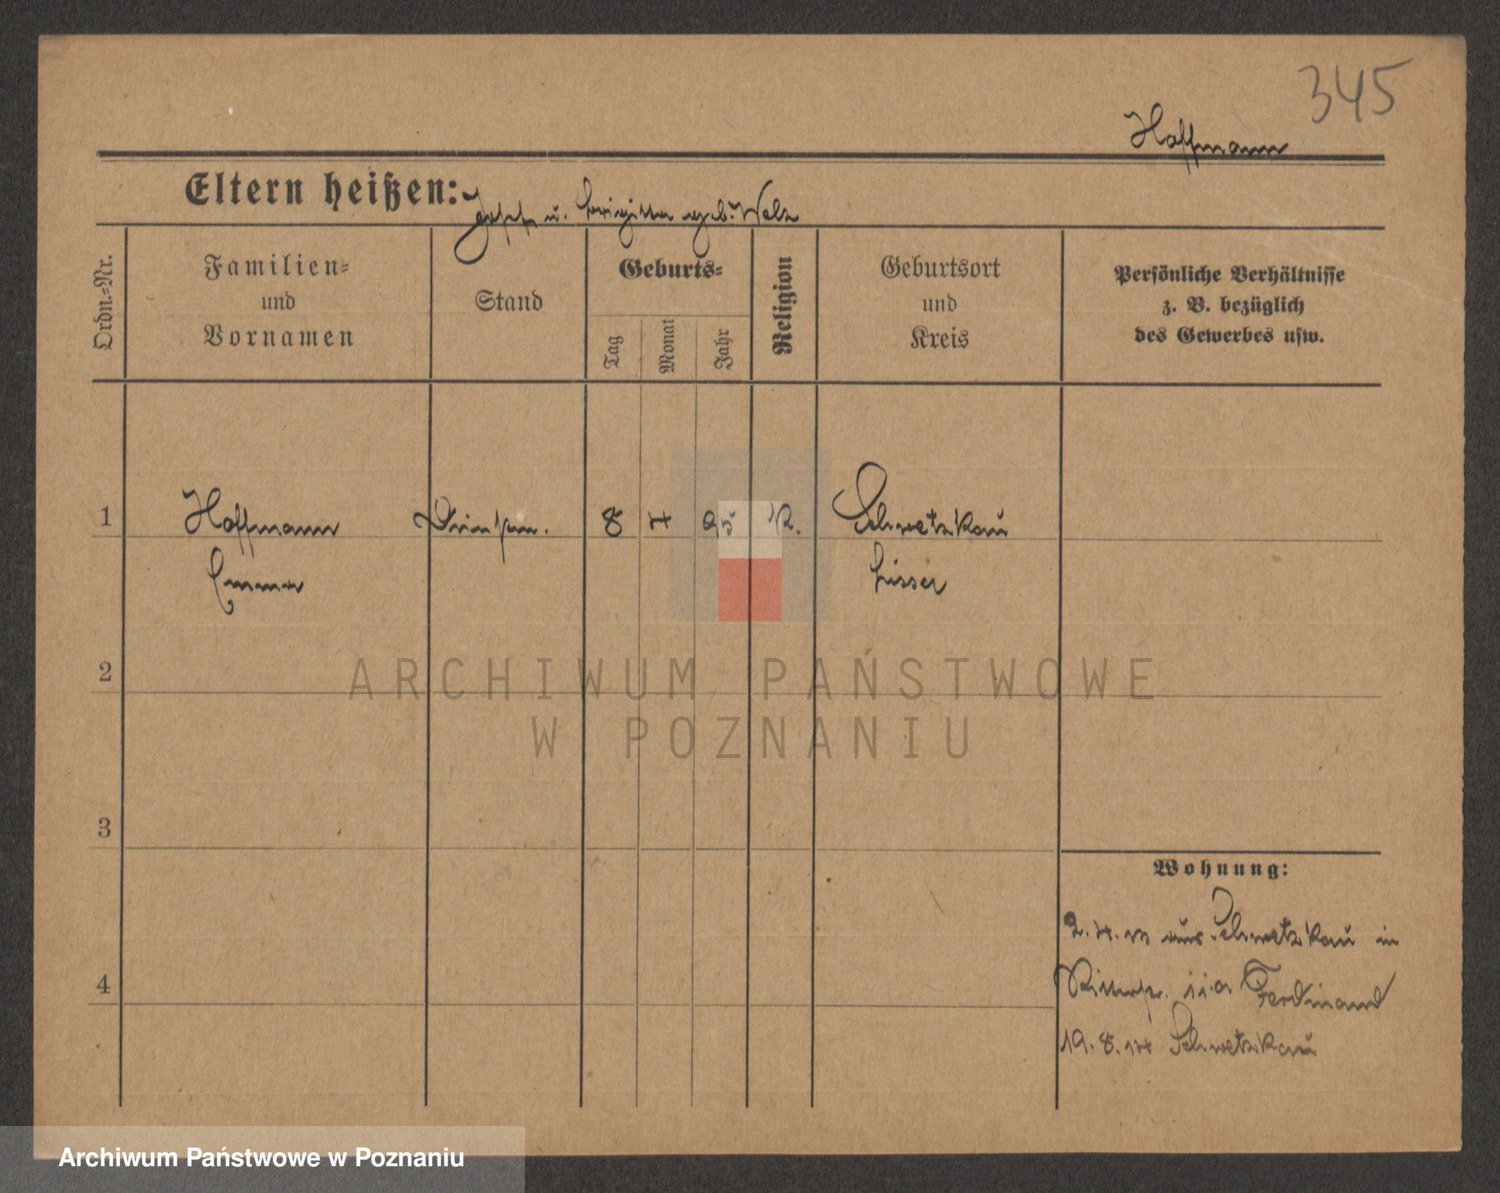 345
Hoffmann
Eltern heißen: Joseph u. Brigitta geb. Welz
Ordn.-Nr.
Familien-
und
Vornamen
Stand
Geburts-
Tag
Monat
Jahr
Religion
Geburtsort
und
Kreis
Persönliche Verhältnisse
z. B. bezüglich
des Gewerbes usw.
1 Hoffmann 8 4 95 K. Schwetzkau
Emma Lissa
2
3
4
Wohnung:
2. 4. aus Schwetzkau in
Ferdinand
19. 8. 14 Schwetzkau
ARCHIWUM PAŃSTWOWE
W POZNANIU
Archiwum Państwowe w Poznaniu